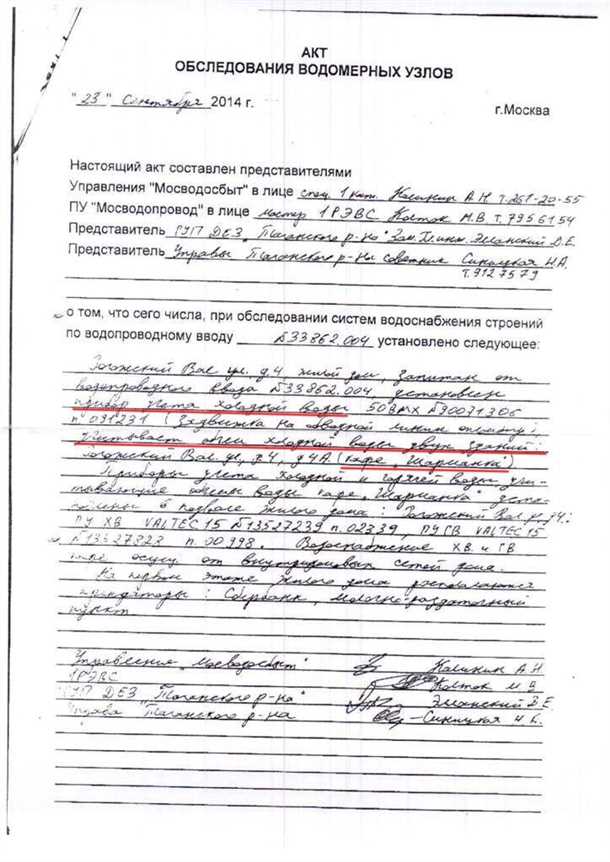 АКТ
ОБСЛЕДОВАНИЯ ВОДОМЕРНЫХ УЗЛОВ
"23" Сентября 2014 г.
г.Москва
Настоящий акт составлен представителями
Управления "Мосводосбыт" в лице спец. 1 кат. Каликин А.Н. т.251-20-55
ПУ "Мосводопровод" в лице мастер 1 РЭВС Колток М.В. т.795 61 54
Представитель ГУП ДЕЗ "Таганского р-на" Зам.
Представитель Управы Таганского р-на советник Синицкая Н.А.
т.912 75 79
о том, что сего числа, при обследовании систем водоснабжения строений
по водопроводному вводу №33862.004 установлено следующее:
Рогожский Вал ул. д.4, жилой дом, запитан от
водопроводного ввода №33862.004, установлен
прибор учета холодной воды 50 №90031306
п. 091231 (Задвижка на обводной линии опломб.),
Учитывает объем холодной воды двух зданий:
Рогожский Вал ул, д.4, д.4А (кафе "Шарманка")
Приборы учета холодной и горячей воды учи-
тывающие объемы воды кафе "Шарманка" уста-
новлены в подвале жилого дома: Рогожский Вал ул. д.4:
ПУ ХВ VALTEC 15 №13527239 п.02339, ПУ ГВ VALTEC 15
п.00998. Водоснабжение ХВ и ГВ
от внутридомовых сетей дома.
На первом этаже жилого дома располагаются
арендаторы: Сбербанк, молочно-раздаточный
пункт
Управления "Мосводосбыт" Каликин А.Н.
1 РЭВС Колток М.В.
ГУП ДЕЗ "Таганского р-на"
Управа "Таганского р-на Синицкая Н.А.